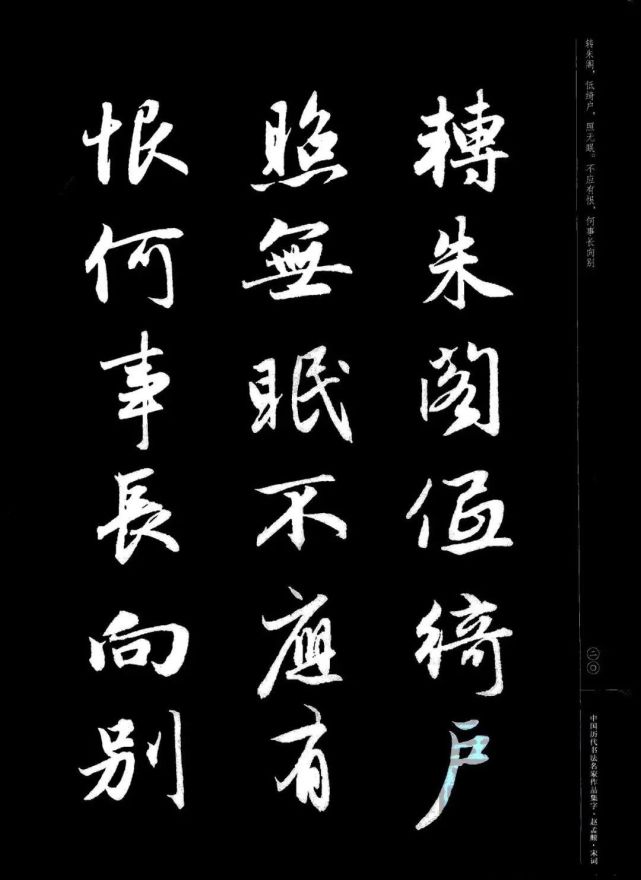 轉朱閣低綺戶
照無眠不應有
恨何事長向别
转朱阁，低绮户，照无眠。不应有恨，何事长向别
二〇
中国历代书法名家作品集字·赵孟頫·宋词